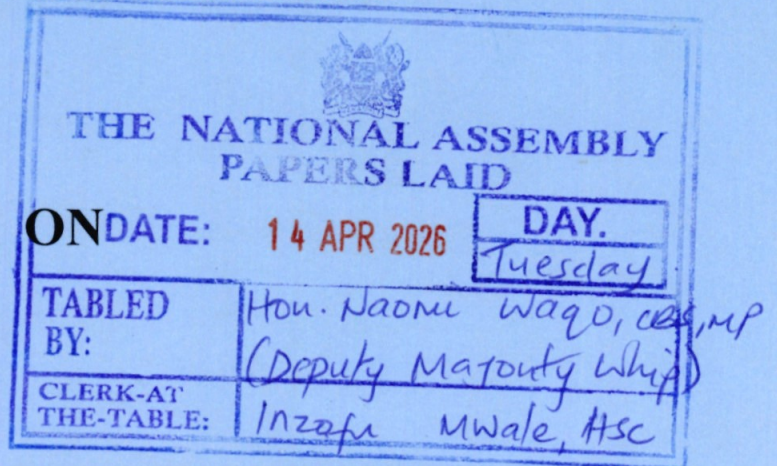 THE NATIONAL ASSEMBLY
PAPERS LAID
ON DATE: 14 APR 2026 DAY.
Tuesday
TABLED BY: Hon. Naomi Waqo, CBS, MP
(Deputy Majority Whip)
CLERK-AT THE-TABLE: Inzofu Mwale, HSC